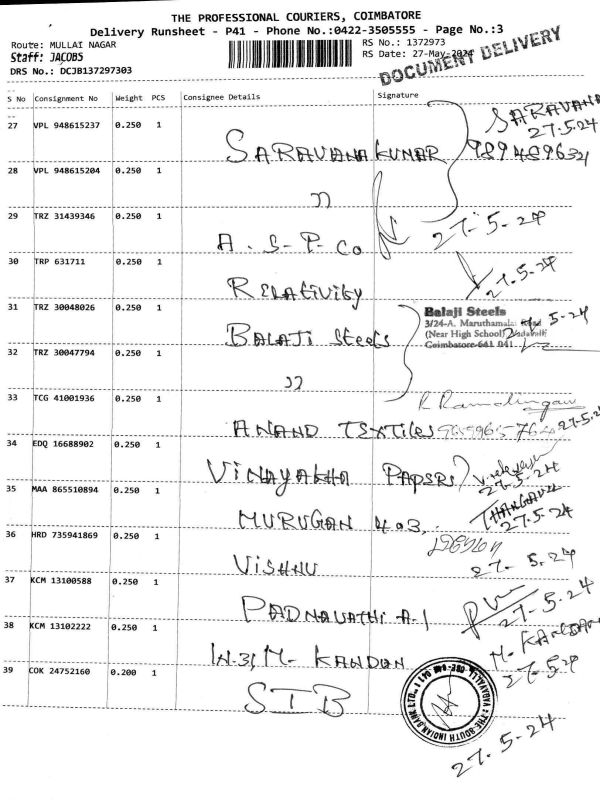 THE PROFESSIONAL COURIERS, COIMBATORE
Delivery Runsheet - P41 - Phone No.:0422-3505555 - Page No.:3
Route: MULLAI NAGAR
RS No.: 1372973
Staff: JACOBS
RS Date: 27-May-2024
DRS No.: DCJB137297303
DOCUMENT DELIVERY
S No Consignment No Weight PCS Consignee Details Signature
27 VPL 948615237 0.250 1
SARAVANA KUMAR
27.5.24
28 VPL 948615204 0.250 1
〃
29 TRZ 31439346 0.250 1
A.S-P-Co
27-5-24
30 TRP 631711 0.250 1
Relativity
27.5-24
31 TRZ 30048026 0.250 1
BALAJI Steels
Balaji Steels
3/24-A, Maruthamalai Road
(Near High School) Vadavalli
Coimbatore-641 041
5-24
32 TRZ 30047794 0.250 1
〃
33 TCG 41001936 0.250 1
ANAND TEXTILES
27.5.2
34 EDQ 16688902 0.250 1
VINAYAKHA PAPERS
27-5-24
35 MAA 865510894 0.250 1
MURUGAN 403
27.5.24
36 HRD 735941869 0.250 1
VISHNU
27- 5.24
37 KCM 13100588 0.250 1
PADMAVATHI A-1
27-5-24
38 KCM 13102222 0.250 1
M- KANDAN
27-5-24
39 COK 24752160 0.200 1
SIB
THE SOUTH INDIAN BANK LTD.
27-5-24